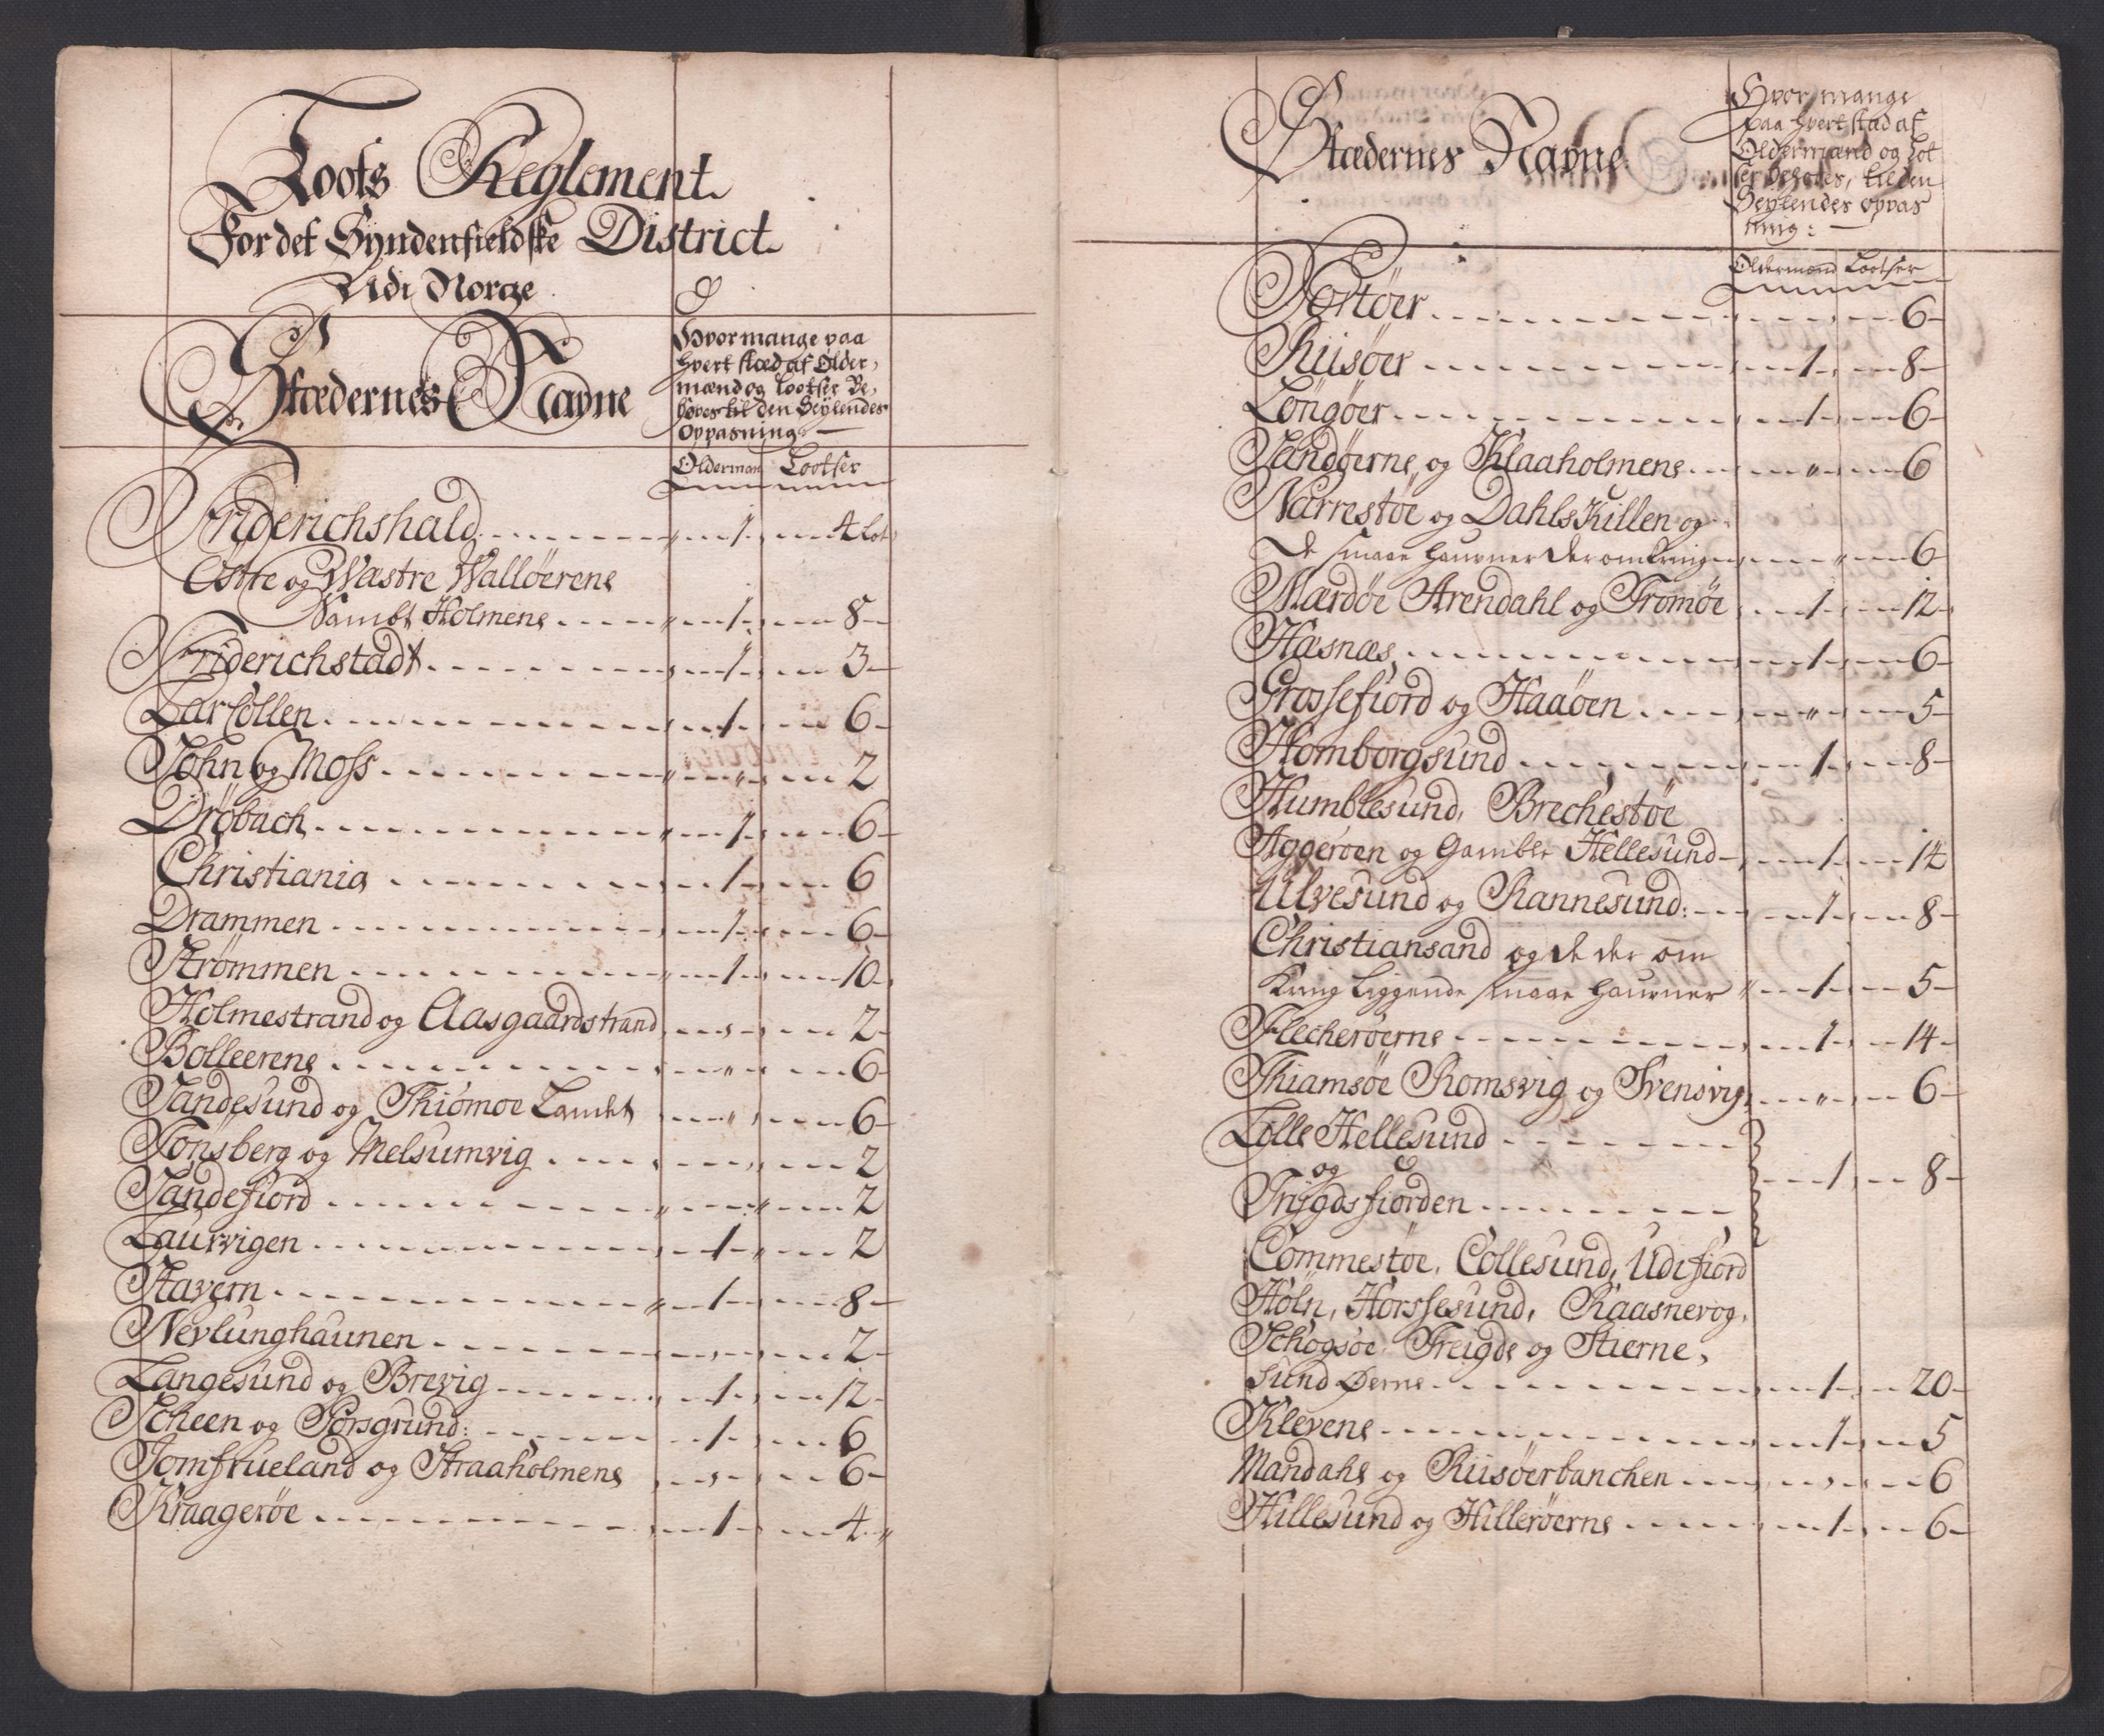 Loots Reglement
For det Syndenfieldske District
Udi Norge
Stædernes Navne
Hvor mange paa
hvert stæd af Older,
mænd og Lootser Be,
høves til den Seylendes
Oppasning
Olderman Lootser
Friderichshald 1 4 Lot
Östre og Wæstre Walløerene
Sambt Holmene 1 8
Friderichstadt 1 3
Larkollen 1 6
Sohn og Moss 2
Drøbach 1 6
Christiania 1 6
Drammen 1 6
Strømmen 1 10
Holmestrand og Aasgaardstrand 2
Bolleerene 6
Sandesund og Thiömoe Landet 6
Tonsberg og Melsumvig 2
Sandefiord 2
Laurvigen 1 2
Stavern 1 8
Nevlunghaunen 2
Langesund og Brevig 1 12
Scheen og Porsgrund 1 6
Jomfrueland og Straaholmene 6
Kraagerøe 1 4
Stædernes Navne
Hvor mange
paa hvert stad af
Oldermænd og Lot
ser Behøves, til den
Seylendes oppas
ning:
Oldermænd Lootser
Portöer 6
Riisöer 1 8
Löngöer 1 6
Sandöerne og Klaaholmene 6
Narrestöe og Dahls Killen og
de smaae Haufner der omkring 6
Mærdöe Arendahl og Tromöe 1 12
Hæsnæs 1 6
Grossefiord og Haaöen 5
Homborgsund 1 8
Humblesund, Brechestöe
Aggeröen og Gamble Hellesund 1 14
Ulvesund og Rannesund 1 8
Christiansand og de der om
Kring Liggende smaae Haufner 1 5
Flecheröerne 1 14
Thiamsöe Romsvig og Svensvig 6
Lölle Hellesund
og 1 8
Trÿgdsfiorden
Commestöe, Collesund, Udifiord
Höln, Horssesund, Raasnevog,
Schogsöe Treigde og Stierne,
Sund Øerne 1 20
Klevene 1 5
Mandahl og Riisöerbanchen 6
Hillesund og Hilleröerne 1 6